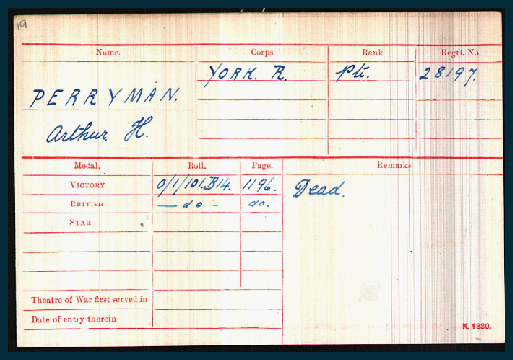 19
Name. Corps Rank Regtl. No.
YORK. R. Pte. 28197.
PERRYMAN.
Arthur H.
Medal. Roll. Page. Remarks
VICTORY 0/1/101.B14. 1196. Dead.
BRITISH — do — do.
STAR
Theatre of War first served in
Date of entry therein
K. 1380.